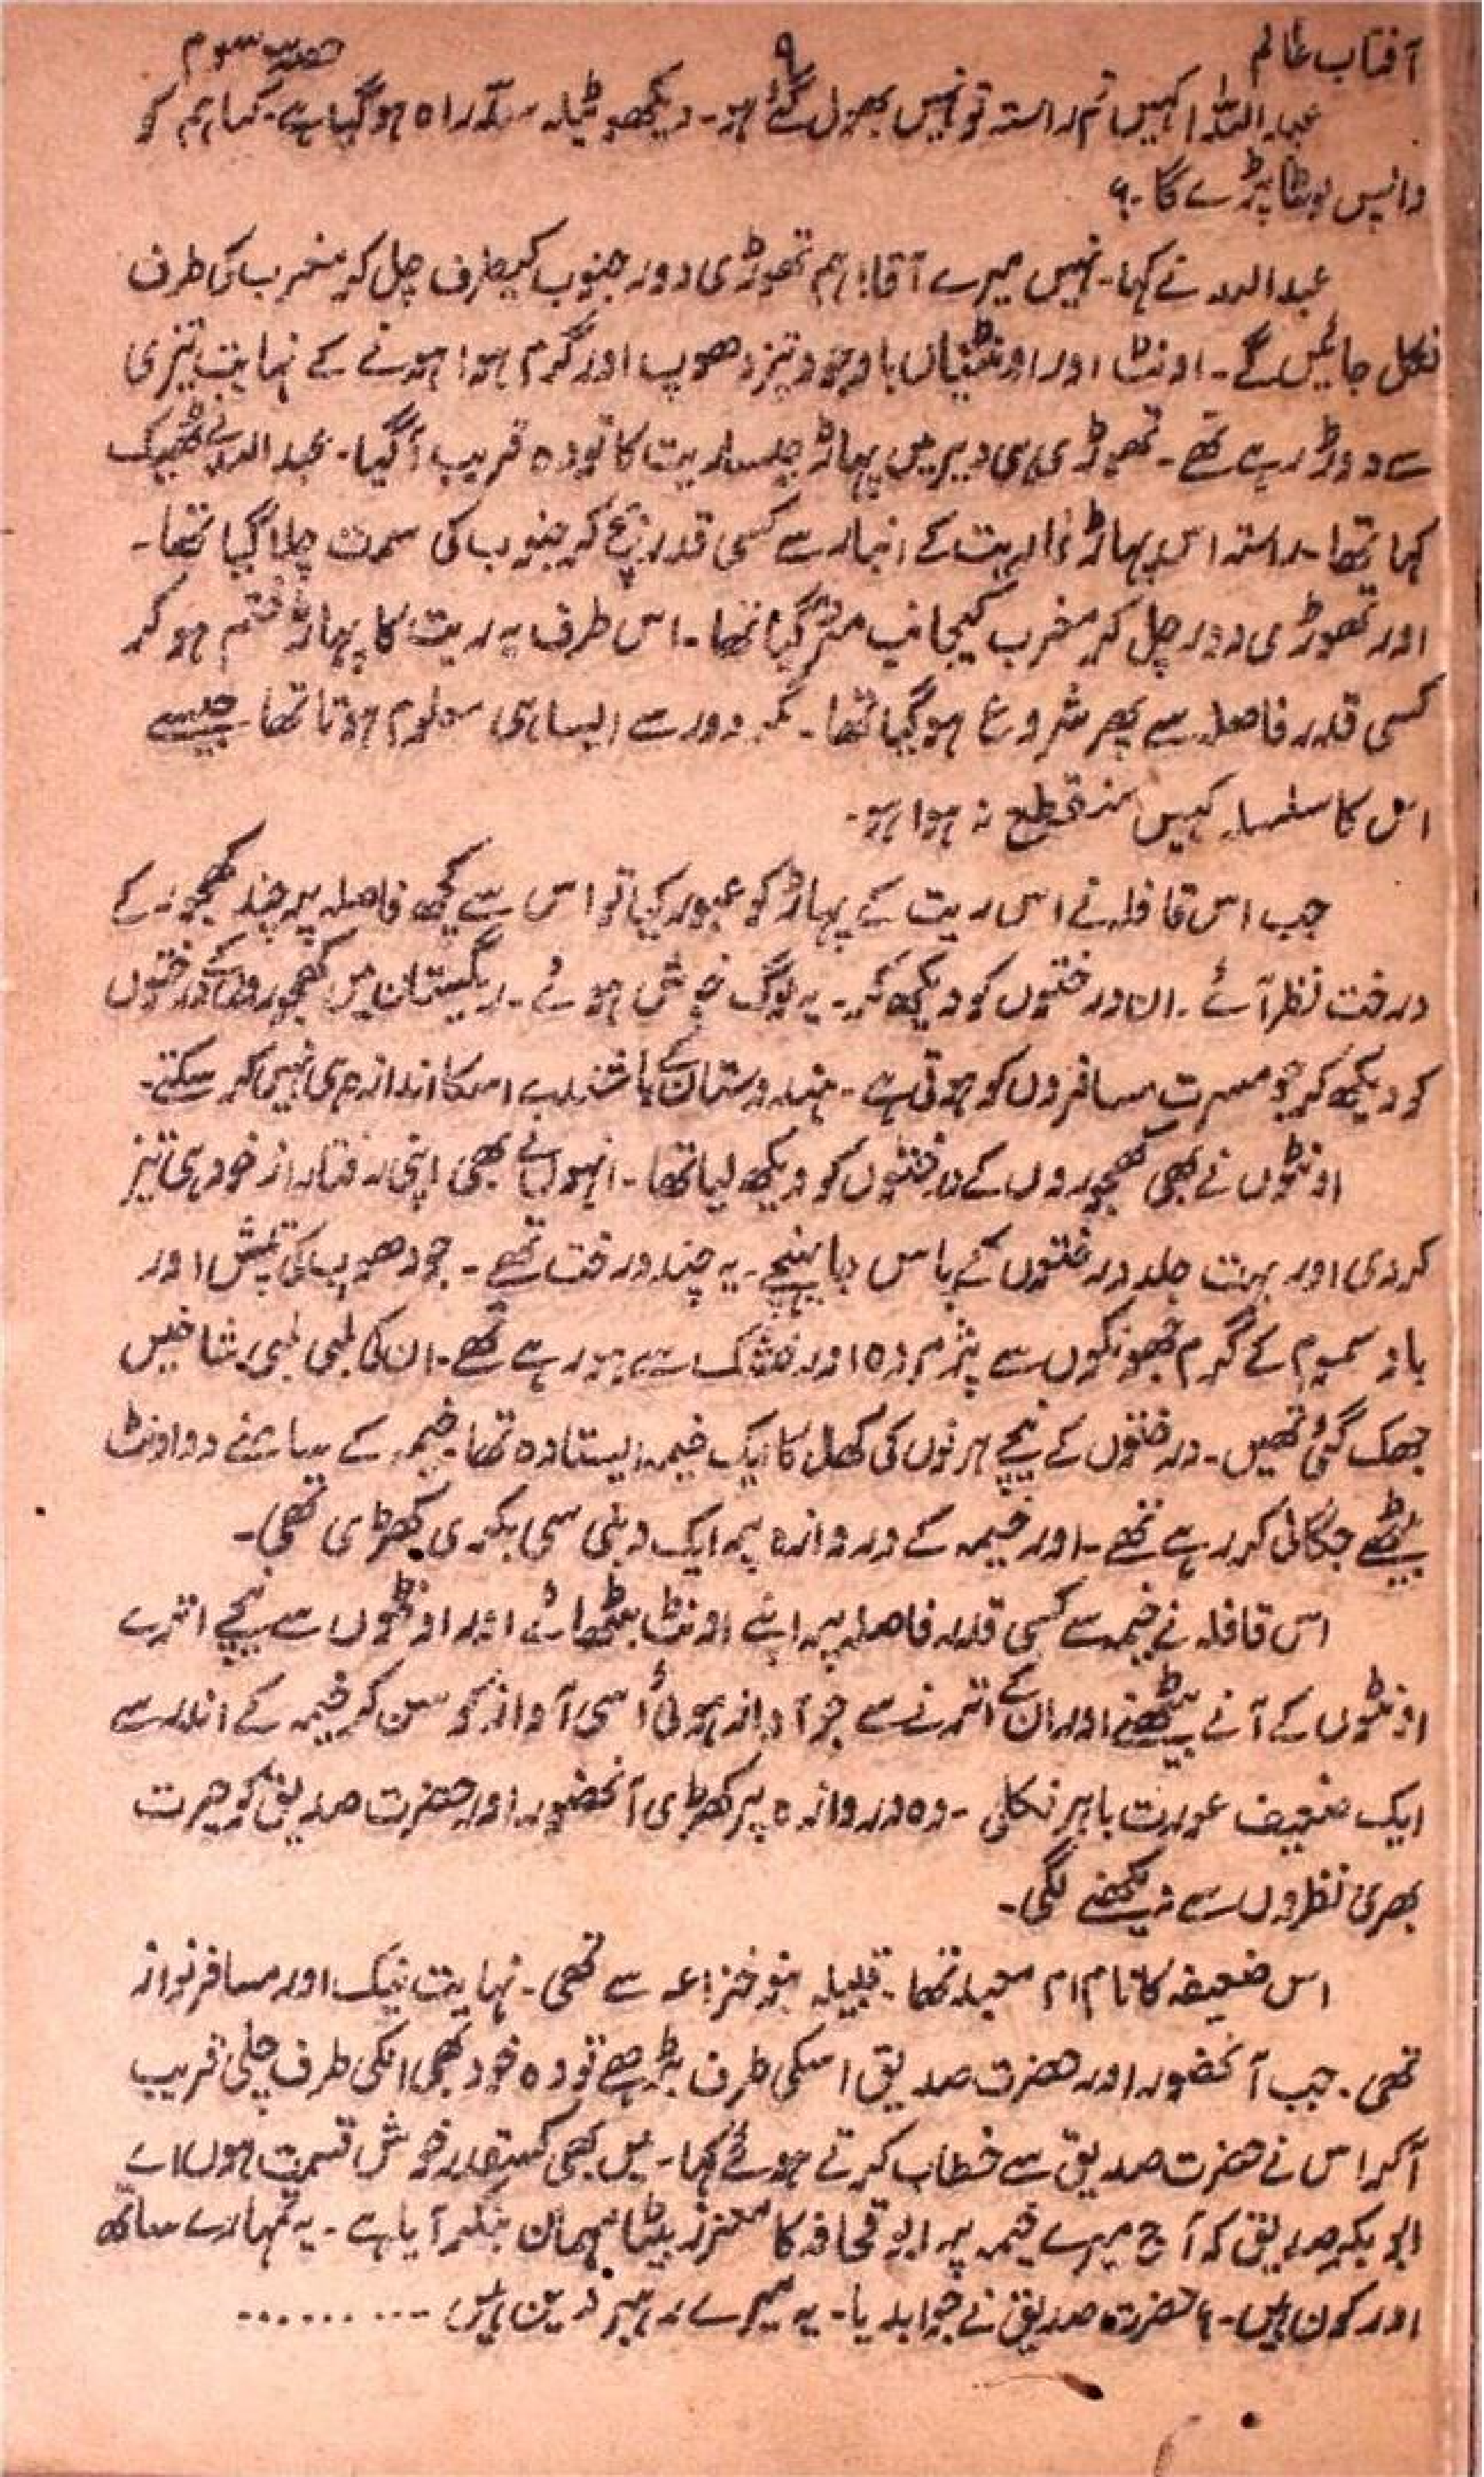 آفتاب عالم ۹ حصہ سوم
عبداللہ! کہیں تم راستہ تو نہیں بھول گئے ہو۔ دیکھو ٹیلہ سدّ راہ ہو گیا ہے۔ کیا ہم کو
واپس لوٹنا پڑے گا۔؟
عبداللہ نے کہا۔ نہیں میرے آقا! ہم تھوڑی دور جنوب کیطرف چل کر مغرب کی طرف
نکل جائیں گے۔ اونٹ اور اونٹنیاں باوجود تیز دھوپ اور گرم ہوا ہونے کے نہایت تیزی
سے دوڑ رہے تھے۔ تھوڑی ہی دیر میں پہاڑ جیسا ریت کا تودہ قریب آگیا۔ عبداللہ نے ٹھیک
کہا تھا۔ راستہ اس پہاڑ نما ریت کے انبار سے کسی قدر بچ کر جنوب کی سمت چلا گیا تھا۔
اور تھوڑی دور چل کر مغرب کیجانب مڑ گیا تھا۔ اس طرف یہ ریت کا پہاڑ ختم ہو کر
کسی قدر فاصلہ سے پھر شروع ہو گیا تھا۔ مگر دور سے ایسا ہی معلوم ہوتا تھا جیسے
اس کا سلسلہ کہیں منقطع نہ ہوا ہو۔
جب اس قافلہ نے اس ریت کے پہاڑ کو عبور کیا تو اس سے کچھ فاصلہ پر چند کھجور کے
درخت نظر آئے۔ ان درختوں کو دیکھ کر۔ یہ لوگ خوش ہوئے۔ ریگستان میں کھجوروں کے درختوں
کو دیکھ کر جو مسرت مسافروں کو ہوتی ہے۔ ہندوستان کے باشندے اسکا اندازہ ہی نہیں کر سکتے۔
اونٹوں نے بھی کھجوروں کے درختوں کو دیکھ لیا تھا۔ انہوں نے بھی اپنی رفتار از خود ہی تیز
کر دی اور بہت جلد درختوں کے پاس جا پہنچے۔ یہ چند درخت تھے۔ جو دھوپ کی تپش اور
باد سموم کے گرم جھونکوں سے پژمردہ اور خشک سے ہو رہے تھے۔ ان کی لمبی لمبی شاخیں
جھک گئی تھیں۔ درختوں کے نیچے ہرنوں کی کھال کا ایک خیمہ ایستادہ تھا۔ خیمہ کے سامنے دو اونٹ
بیٹھے جگالی کر رہے تھے۔ اور خیمہ کے دروازہ پر ایک دبلی سی بکری کھڑی تھی۔
اس قافلہ نے خیمہ سے کسی قدر فاصلہ پر اپنے اونٹ بٹھائے اور اونٹوں سے نیچے اترے
اونٹوں کے آنے بیٹھنے اور ان کے اترنے سے جو آواز ہوئی اُسی آواز کو سن کر خیمہ کے اندر سے
ایک ضعیف عورت باہر نکلی۔ وہ دروازہ پر کھڑی آنحضور اور حضرت صدیقؓ کو حیرت
بھری نظروں سے دیکھنے لگی۔
اس ضعیفہ کا نام ام معبد تھا۔ قبیلہ بنو خزاعہ سے تھی۔ نہایت نیک اور مسافر نواز
تھی۔ جب آنحضور اور حضرت صدیق اسکی طرف بڑھے تو وہ خود بھی انکی طرف چلی قریب
آکر اس نے حضرت صدیق سے خطاب کرتے ہوئے کہا۔ میں بھی کسقدر خوش قسمت ہوں اے
ابوبکر صدیق کہ آج میرے خیمہ پر ابو قحافہ کا معزز بیٹا مہمان بنکر آیا ہے۔ یہ تمہارے ساتھ
اور کون ہیں۔؟ حضرت صدیق نے جوابدیا۔ یہ میرے رہبر دین ہیں ..........